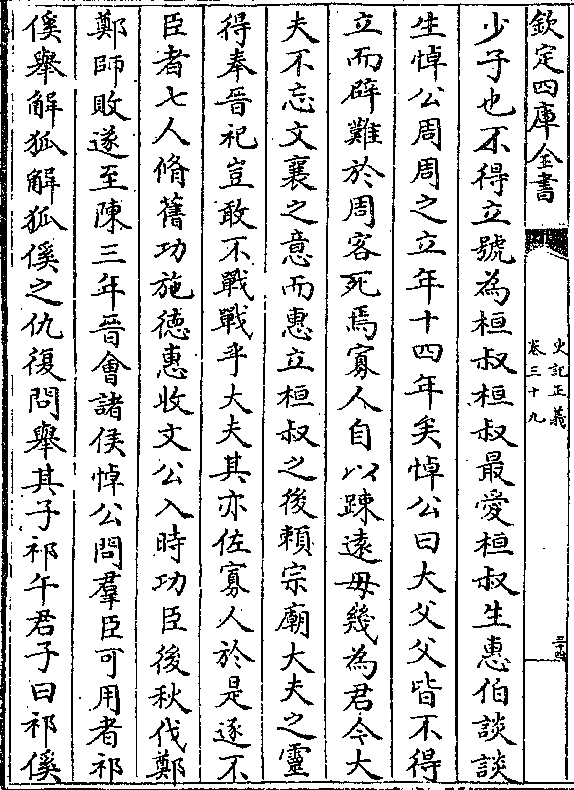 欽定四庫全書
史記正義
卷三十九
三十四
少子也不得立號為桓叔桓叔最愛桓叔生惠伯談談
生悼公周周之立年十四年矣悼公曰大父父皆不得
立而辟難於周客死焉寡人自以踈逺毋幾為君今大
夫不忘文襄之意而惠立桓叔之後賴宗廟大夫之靈
得奉晉祀豈敢不戰戰乎大夫其亦佐寡人於是逐不
臣者七人脩舊功施德惠收文公入時功臣後秋伐鄭
鄭師敗遂至陳三年晉會諸侯悼公問羣臣可用者祁
傒舉解狐解狐傒之仇復問舉其子祁午君子曰祁傒